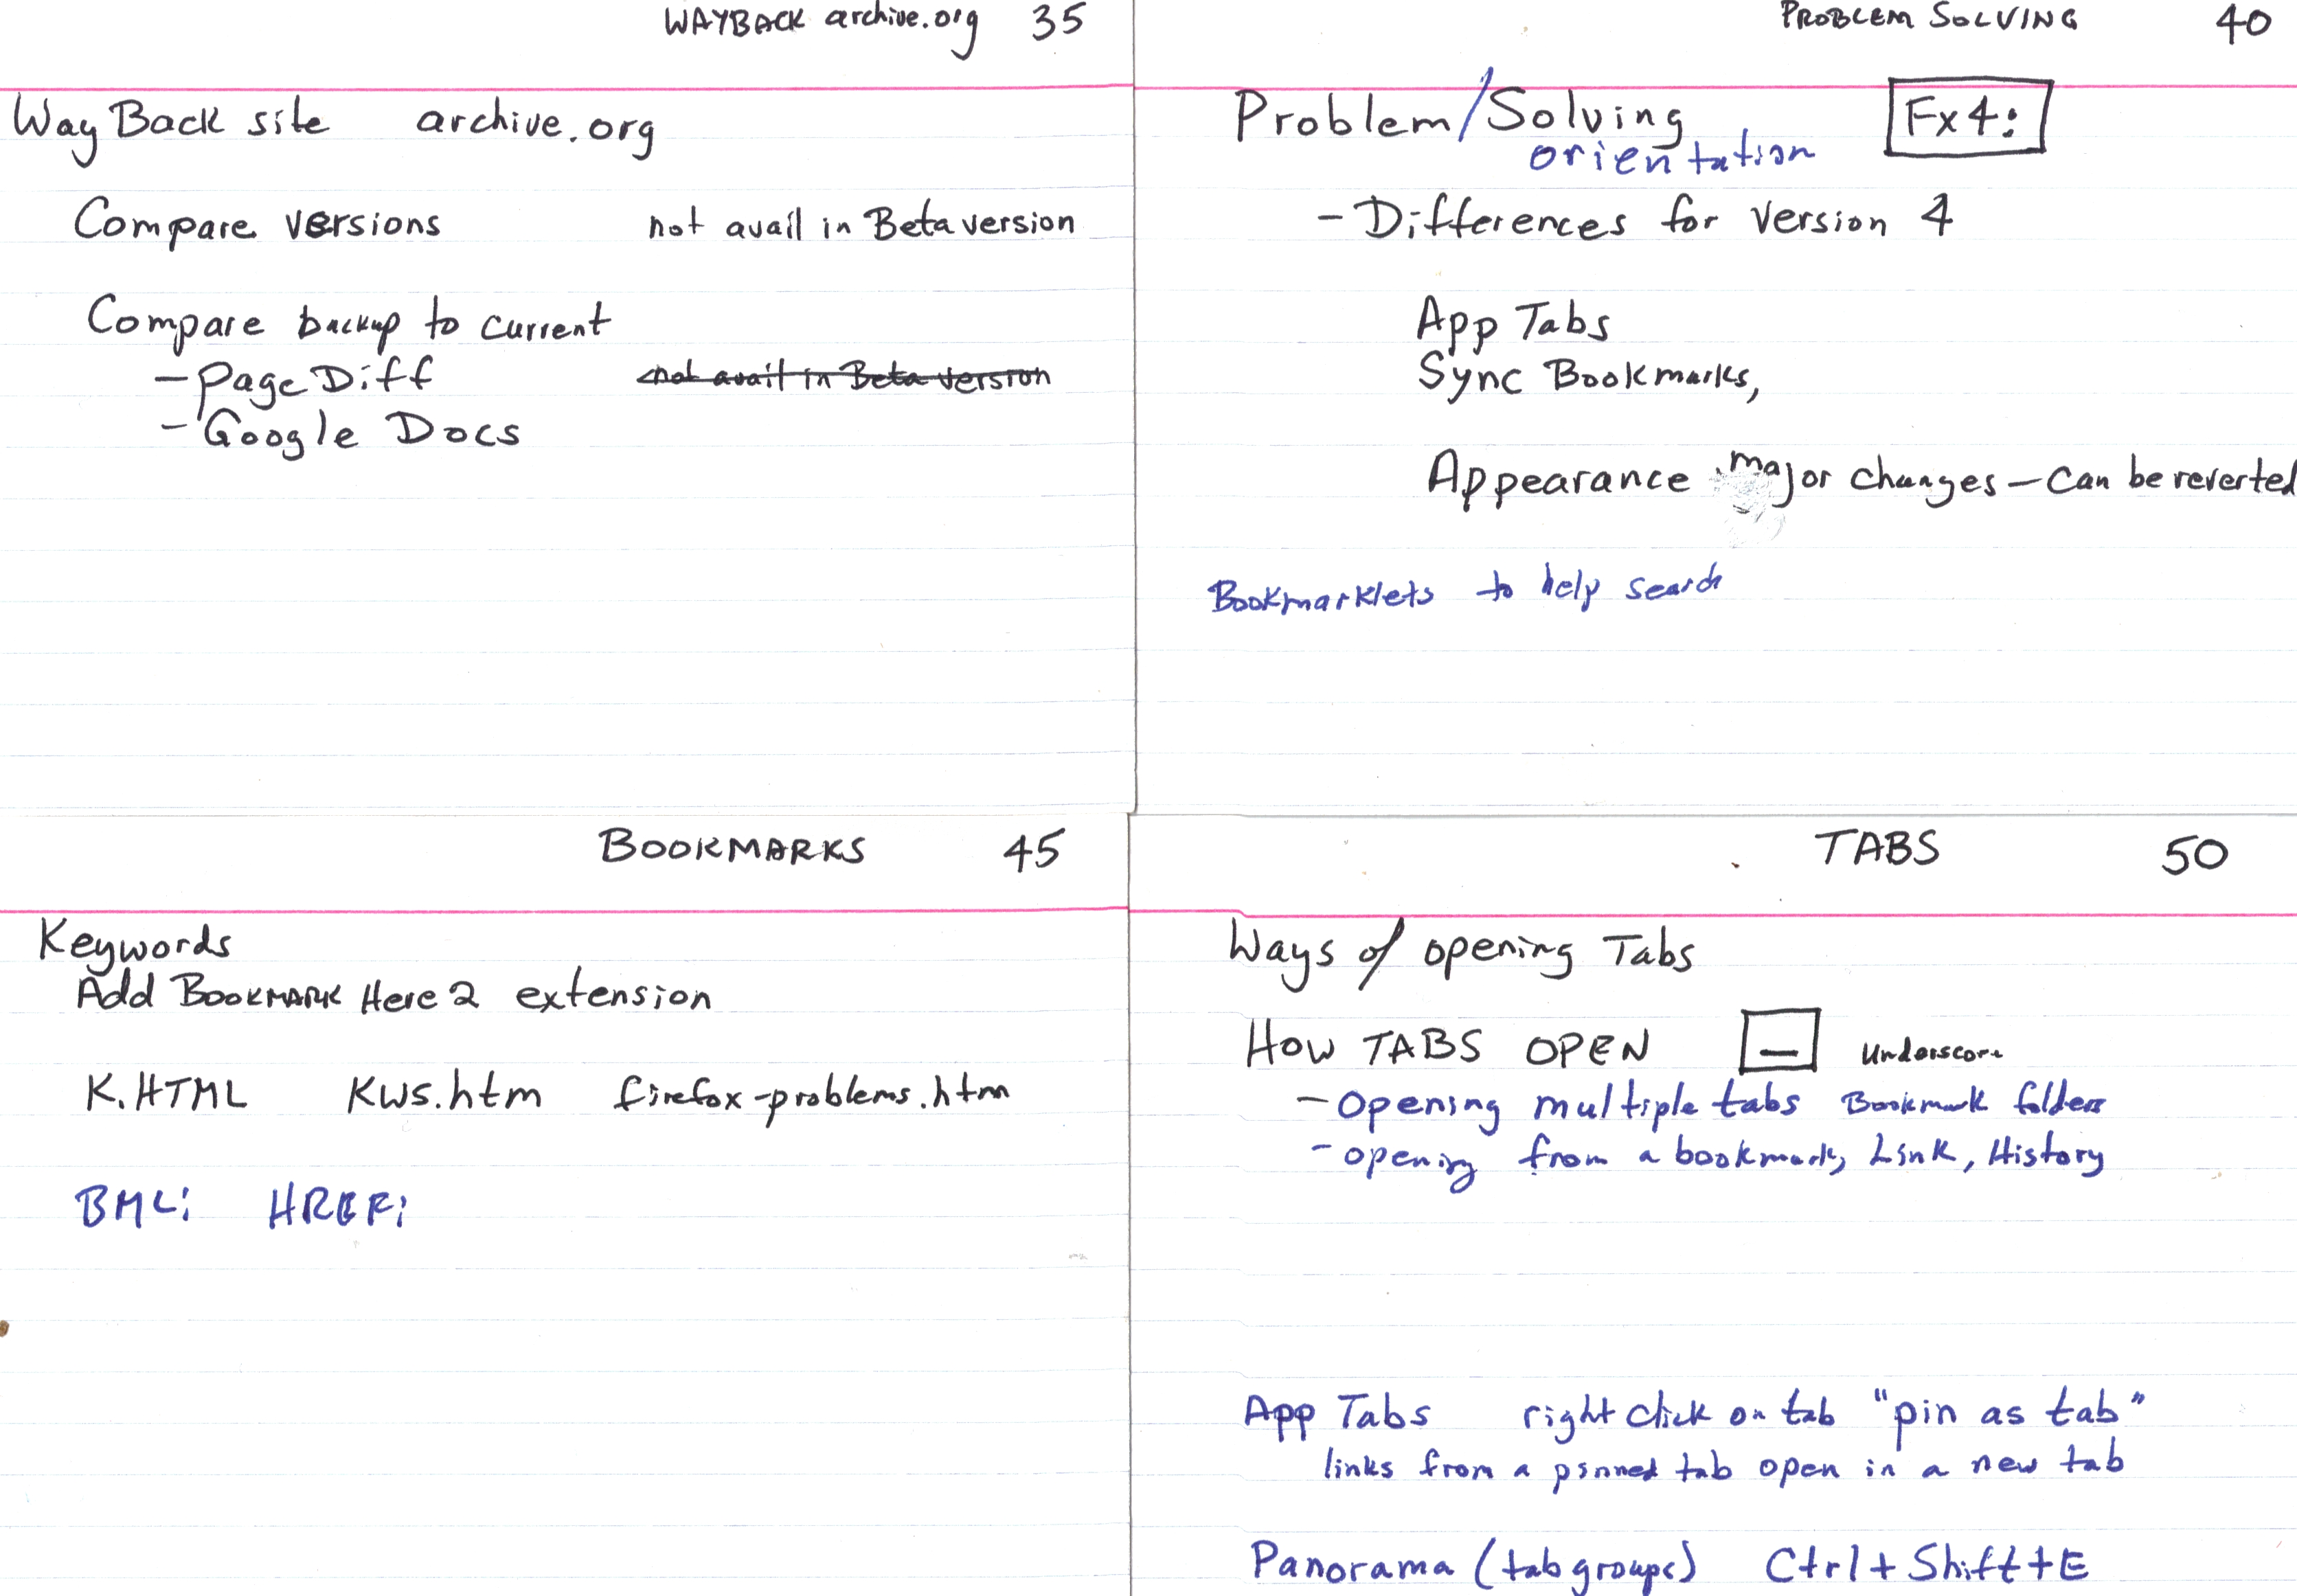 WAYBACK archive.org 35
WayBack site archive.org
Compare versions not avail in Beta version
Compare backup to current
- PageDiff not avail in Beta version
- Google Docs
PROBLEM SOLVING 40
Problem/Solving Fx4:
orientation
- Differences for version 4
App Tabs
Sync Bookmarks,
Appearance major changes - can be reverted
Bookmarklets to help search
BOOKMARKS 45
Keywords
Add BOOKMARK Here 2 extension
K.HTML KWS.htm firefox-problems.htm
BML: HREF:
TABS 50
Ways of opening Tabs
HOW TABS OPEN _ underscore
- Opening multiple tabs Bookmark folders
- opening from a bookmark, Link, History
App Tabs right click on tab "pin as tab"
links from a pinned tab open in a new tab
Panorama (tab groups) Ctrl+Shift+E